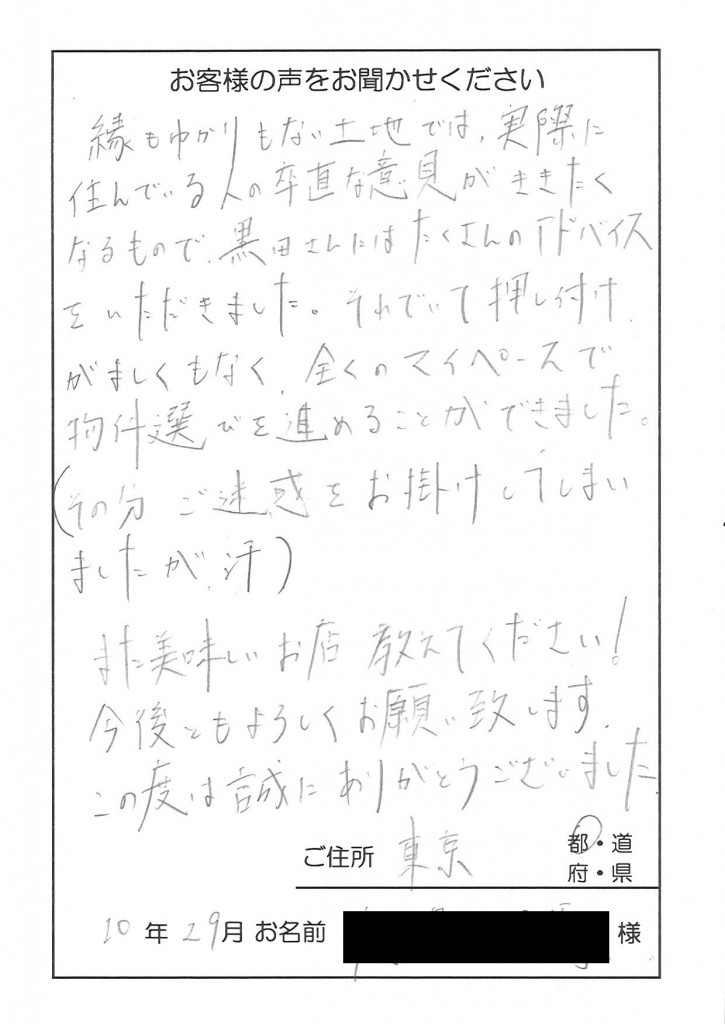 お客様の声をお聞かせください
縁もゆかりもない土地では、実際に
住んでいる人の卒直な意見がききたく
なるもので、黒田さんにはたくさんのアドバイス
をいただきました。それでいて押し付け
がましくもなく、全くのマイペースで
物件選びを進めることができました。
(その分ご迷惑をお掛けしてしまい
ましたが、汗)
また美味しいお店教えてください!
今後ともよろしくお願い致します。
この度は誠にありがとうございました
ご住所 東京 都・道
府・県
10年29月 お名前 様